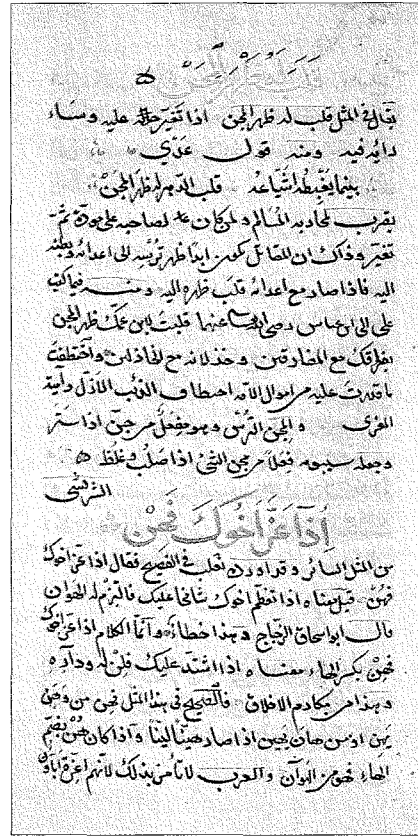 قلب له ظهر المجن
يقال في المثل قلب له ظهر المجن اذا تغير عليه وساء
رأيه فيه ومنه قول عدي
بينما يغبطه اشياعه قلب الدهر له ظهر المجن
يضرب لمحاربة المسالم ولمن كان لصاحبه على مودة ثم
تغير وذاك ان المقاتل يكون ابدا ظهر ترسه الى اعدائه وبطنه
اليه فاذا صار مع اعدائه قلب ظهره اليه ومنه فيما كتب
علي الى ابن عباس رضي الله عنهما قلبت لابن عمك ظهر المجن
بفراقك مع المفارقين وخذلانه مع الخاذلين واختطفت
ما قدرت عليه من اموال الامة اختطاف الذئب الازل دامية
المعزى والمجن الترس وهو مفعل من جن اذا ستر
وجعله سيبويه فعلا من مجن الشئ اذا صلب وغلظ
الشرنشي
اذا عز اخوك فهن
من المثل السائر وقد اورده ثعلب في الفصيح فقال اذا عز اخوك
فهن قيل معناه اذا تعظم اخوك شامخا عليك فالتزم له الهوان
قال ابو اسحاق الزجاج وهذا خطاء وانما الكلام اذا عز اخوك
فهن بكسر الهاء معناه اذا اشتد عليك فلن له وداره
وهذا من مكارم الاخلاق فالصحيح في هذا المثل فهن من وهن
يهن او من هان يهين اذا صار هينا لينا واذا كان هن بضم
الهاء فهو من الهوان والعرب لا تأمر بذلك لانهم اعزة اباؤن